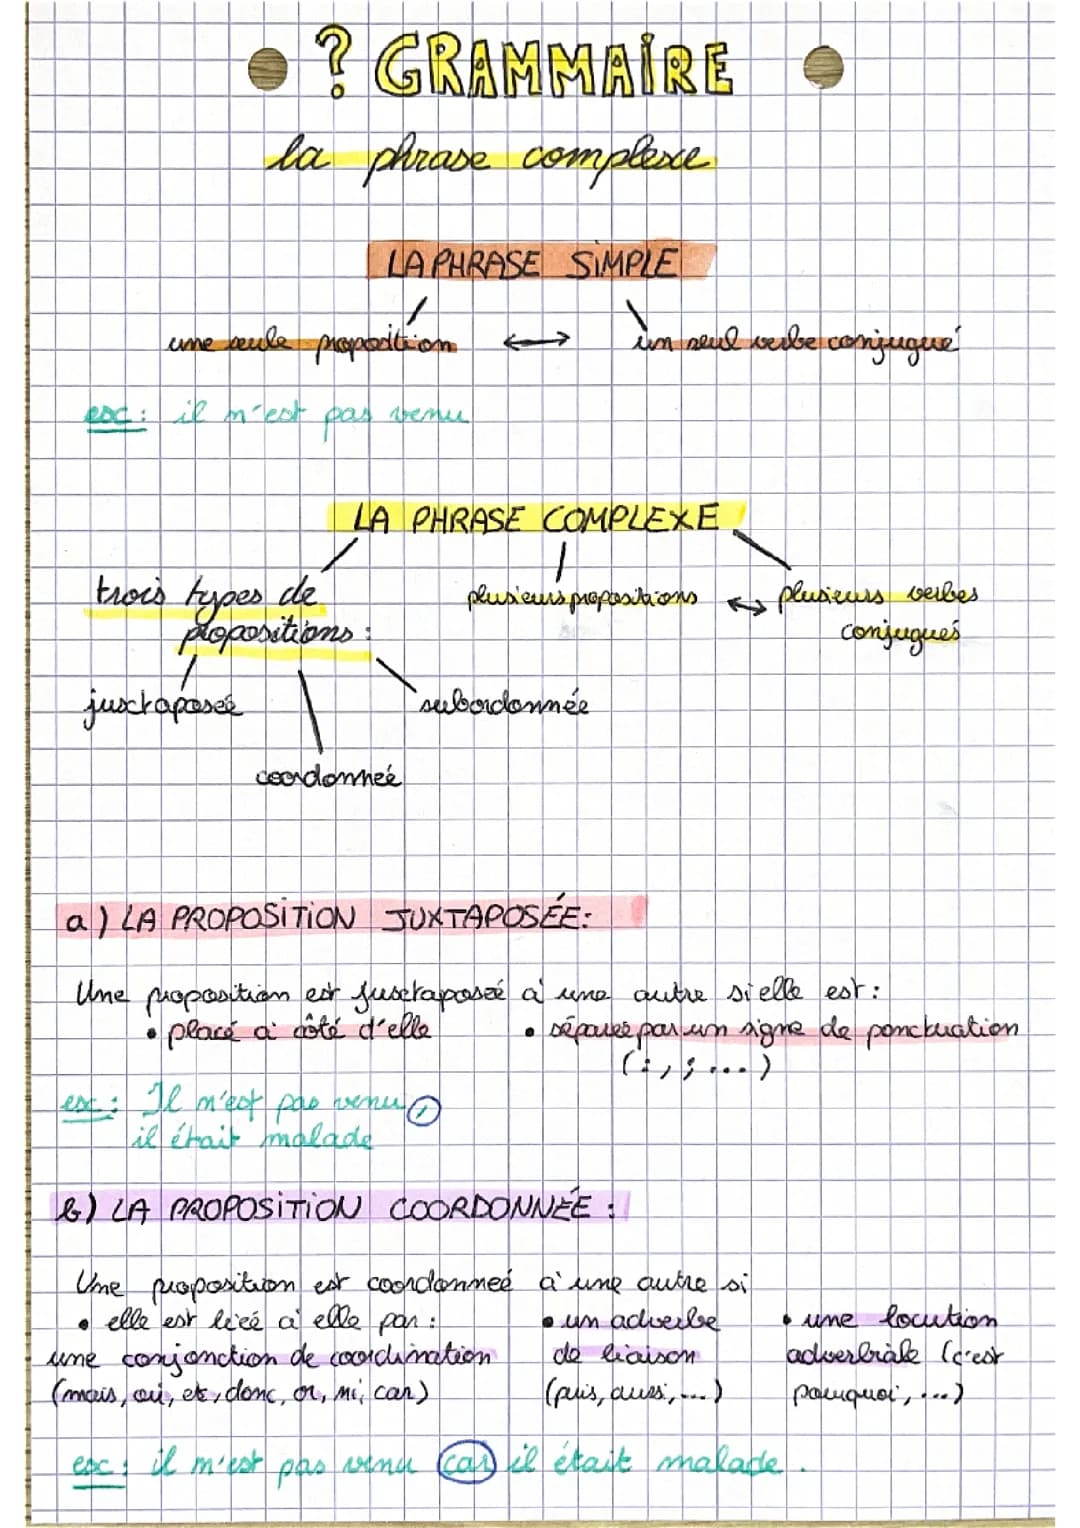 ? GRAMMAIRE
la phrase complexe
LA PHRASE SIMPLE
une seule proposition ↔ un seul verbe conjugué
ex: il n'est pas venu
LA PHRASE COMPLEXE
trois types de propositions :
plusieurs propositions ↔ plusieurs verbes conjugués
juxtaposée
subordonnée
coordonnée
a) LA PROPOSITION JUXTAPOSÉE:
Une proposition est juxtaposée à une autre si elle est :
• placé à côté d'elle
• séparée par un signe de ponctuation
(: , ; ...)
ex : Il n'est pas venu,
il était malade
b) LA PROPOSITION COORDONNÉE :
Une proposition est coordonnée à une autre si
• elle est liée à elle par :
une conjonction de coordination
(mais, ou, et, donc, or, ni, car)
• un adverbe
de liaison
(puis, aussi, ...)
• une locution
adverbiale (c'est
pourquoi, ...)
ex : il n'est pas venu car il était malade.